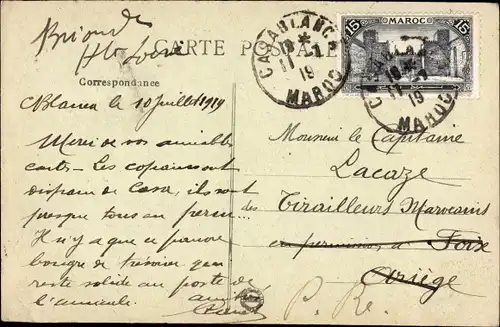 Brioude
Hte Loire
CARTE POSTALE
Correspondance
CASABLANCA
18 *
11 -7
19
MAROC
15 MAROC 15
CASABLANCA
18 *
11 -7
19
MAROC
CBlanca le 10 Juillet 1919
Merci de vos aimables
cartes - Les copains ont
disparu de Casa, ils sont
presque tous en perm...
Il n'y a que ce pauvre
bougre de trésorier qui
reste solide au poste de
l'annuale.
Monsieur le Capitaine
Lacaze
des Tirailleurs Marocains
en permission à Foix
Ariège
P. Re.